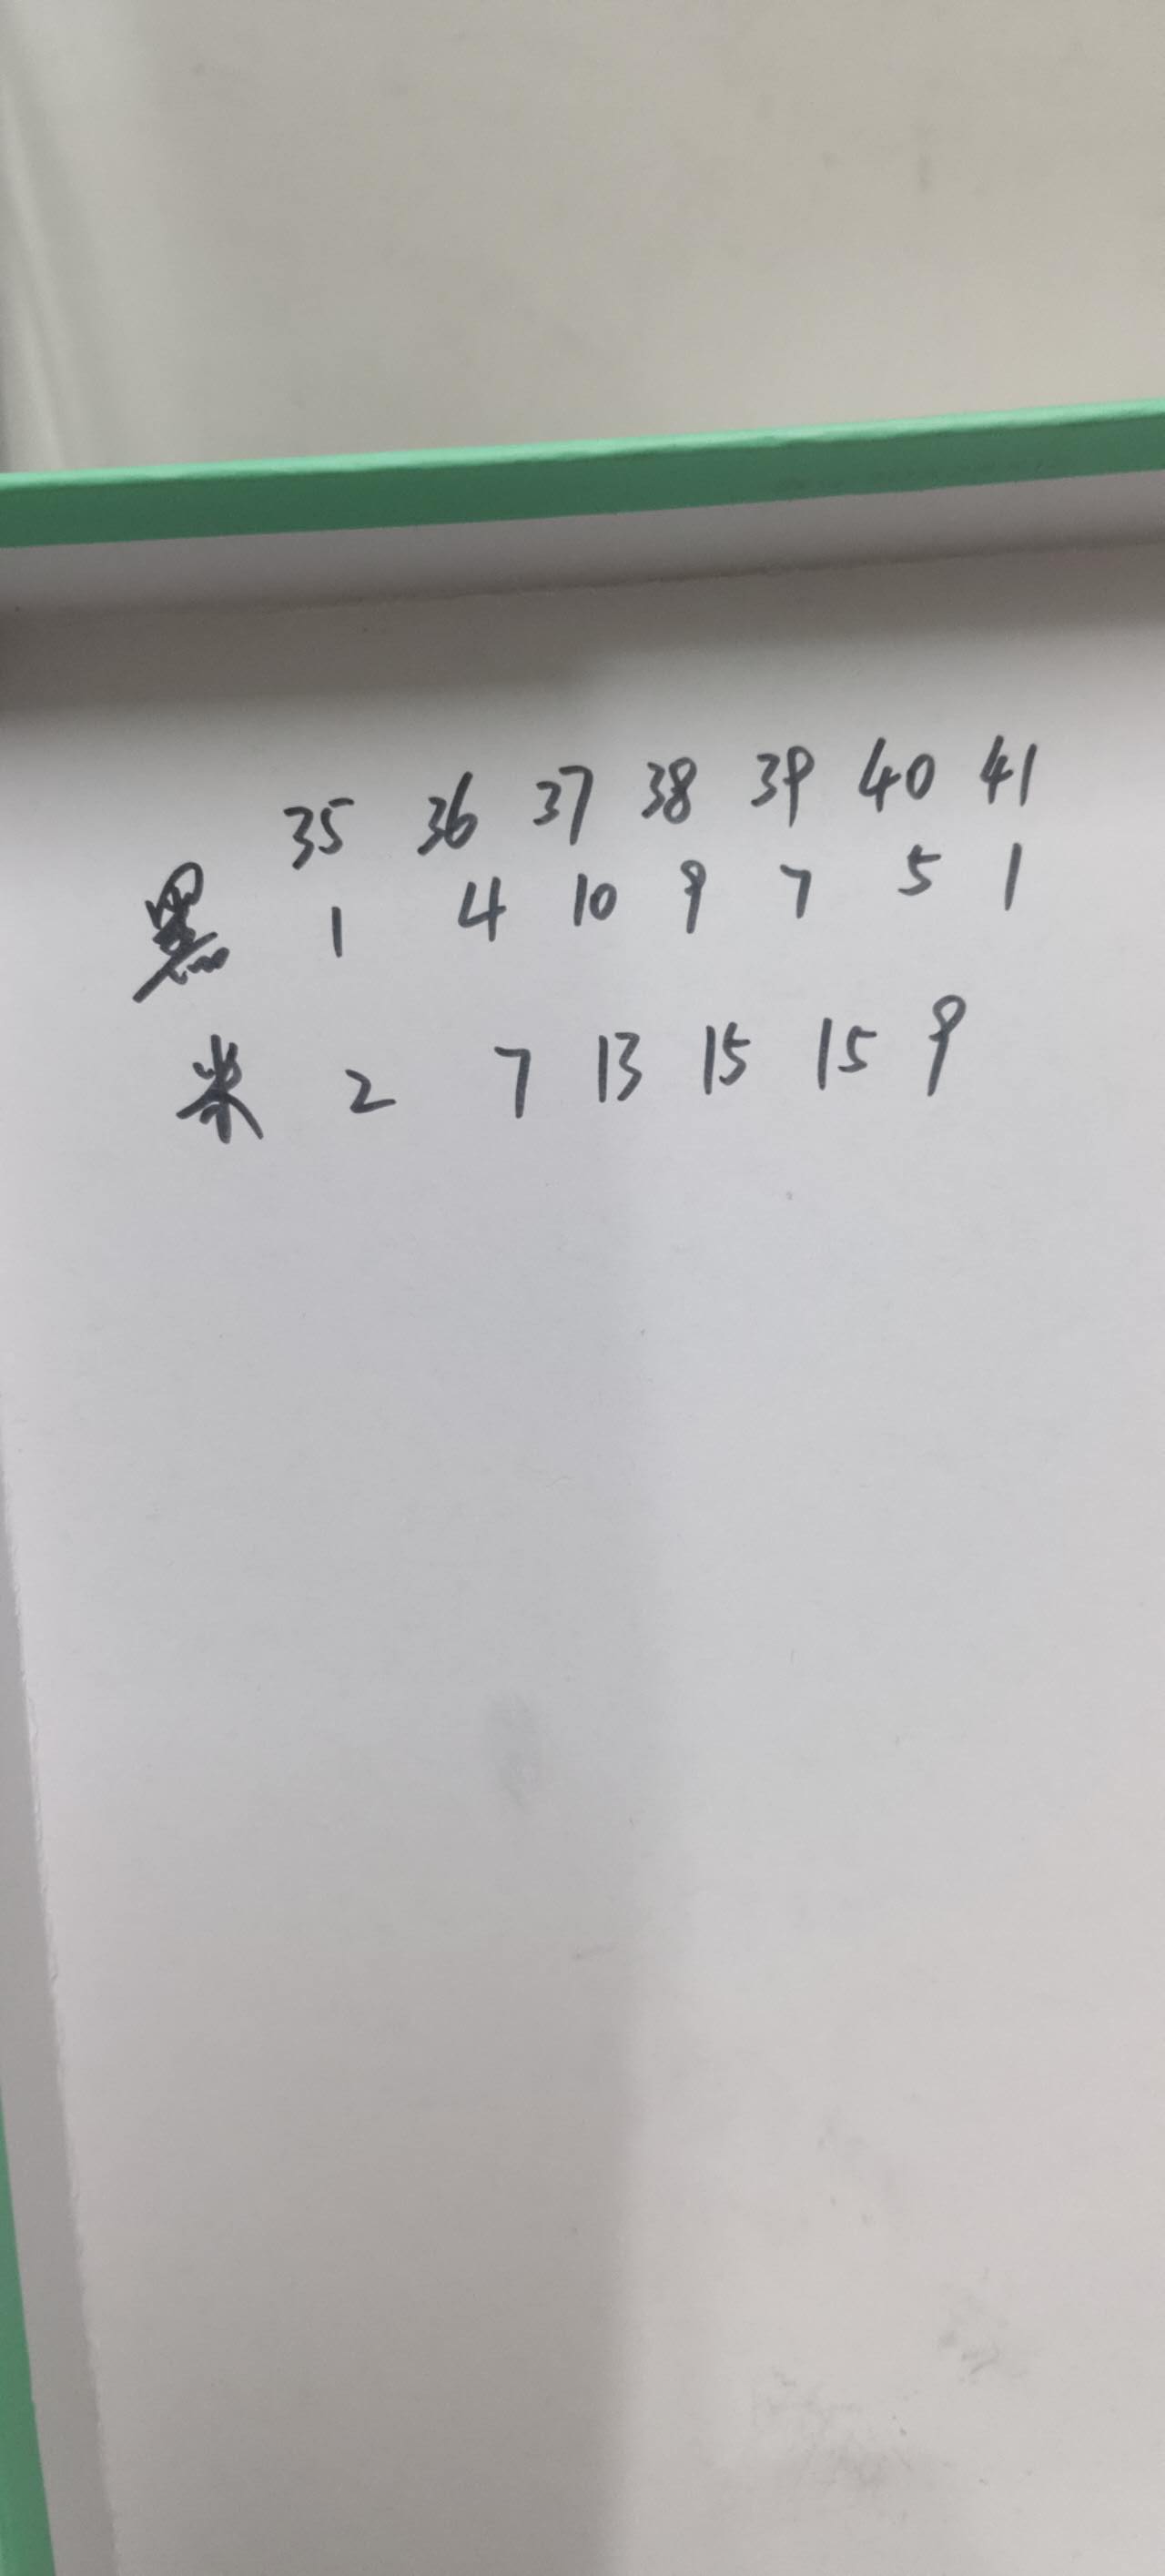 35 36 37 38 39 40 41
黑 1 4 10 9 7 5 1
米 2 7 13 15 15 9